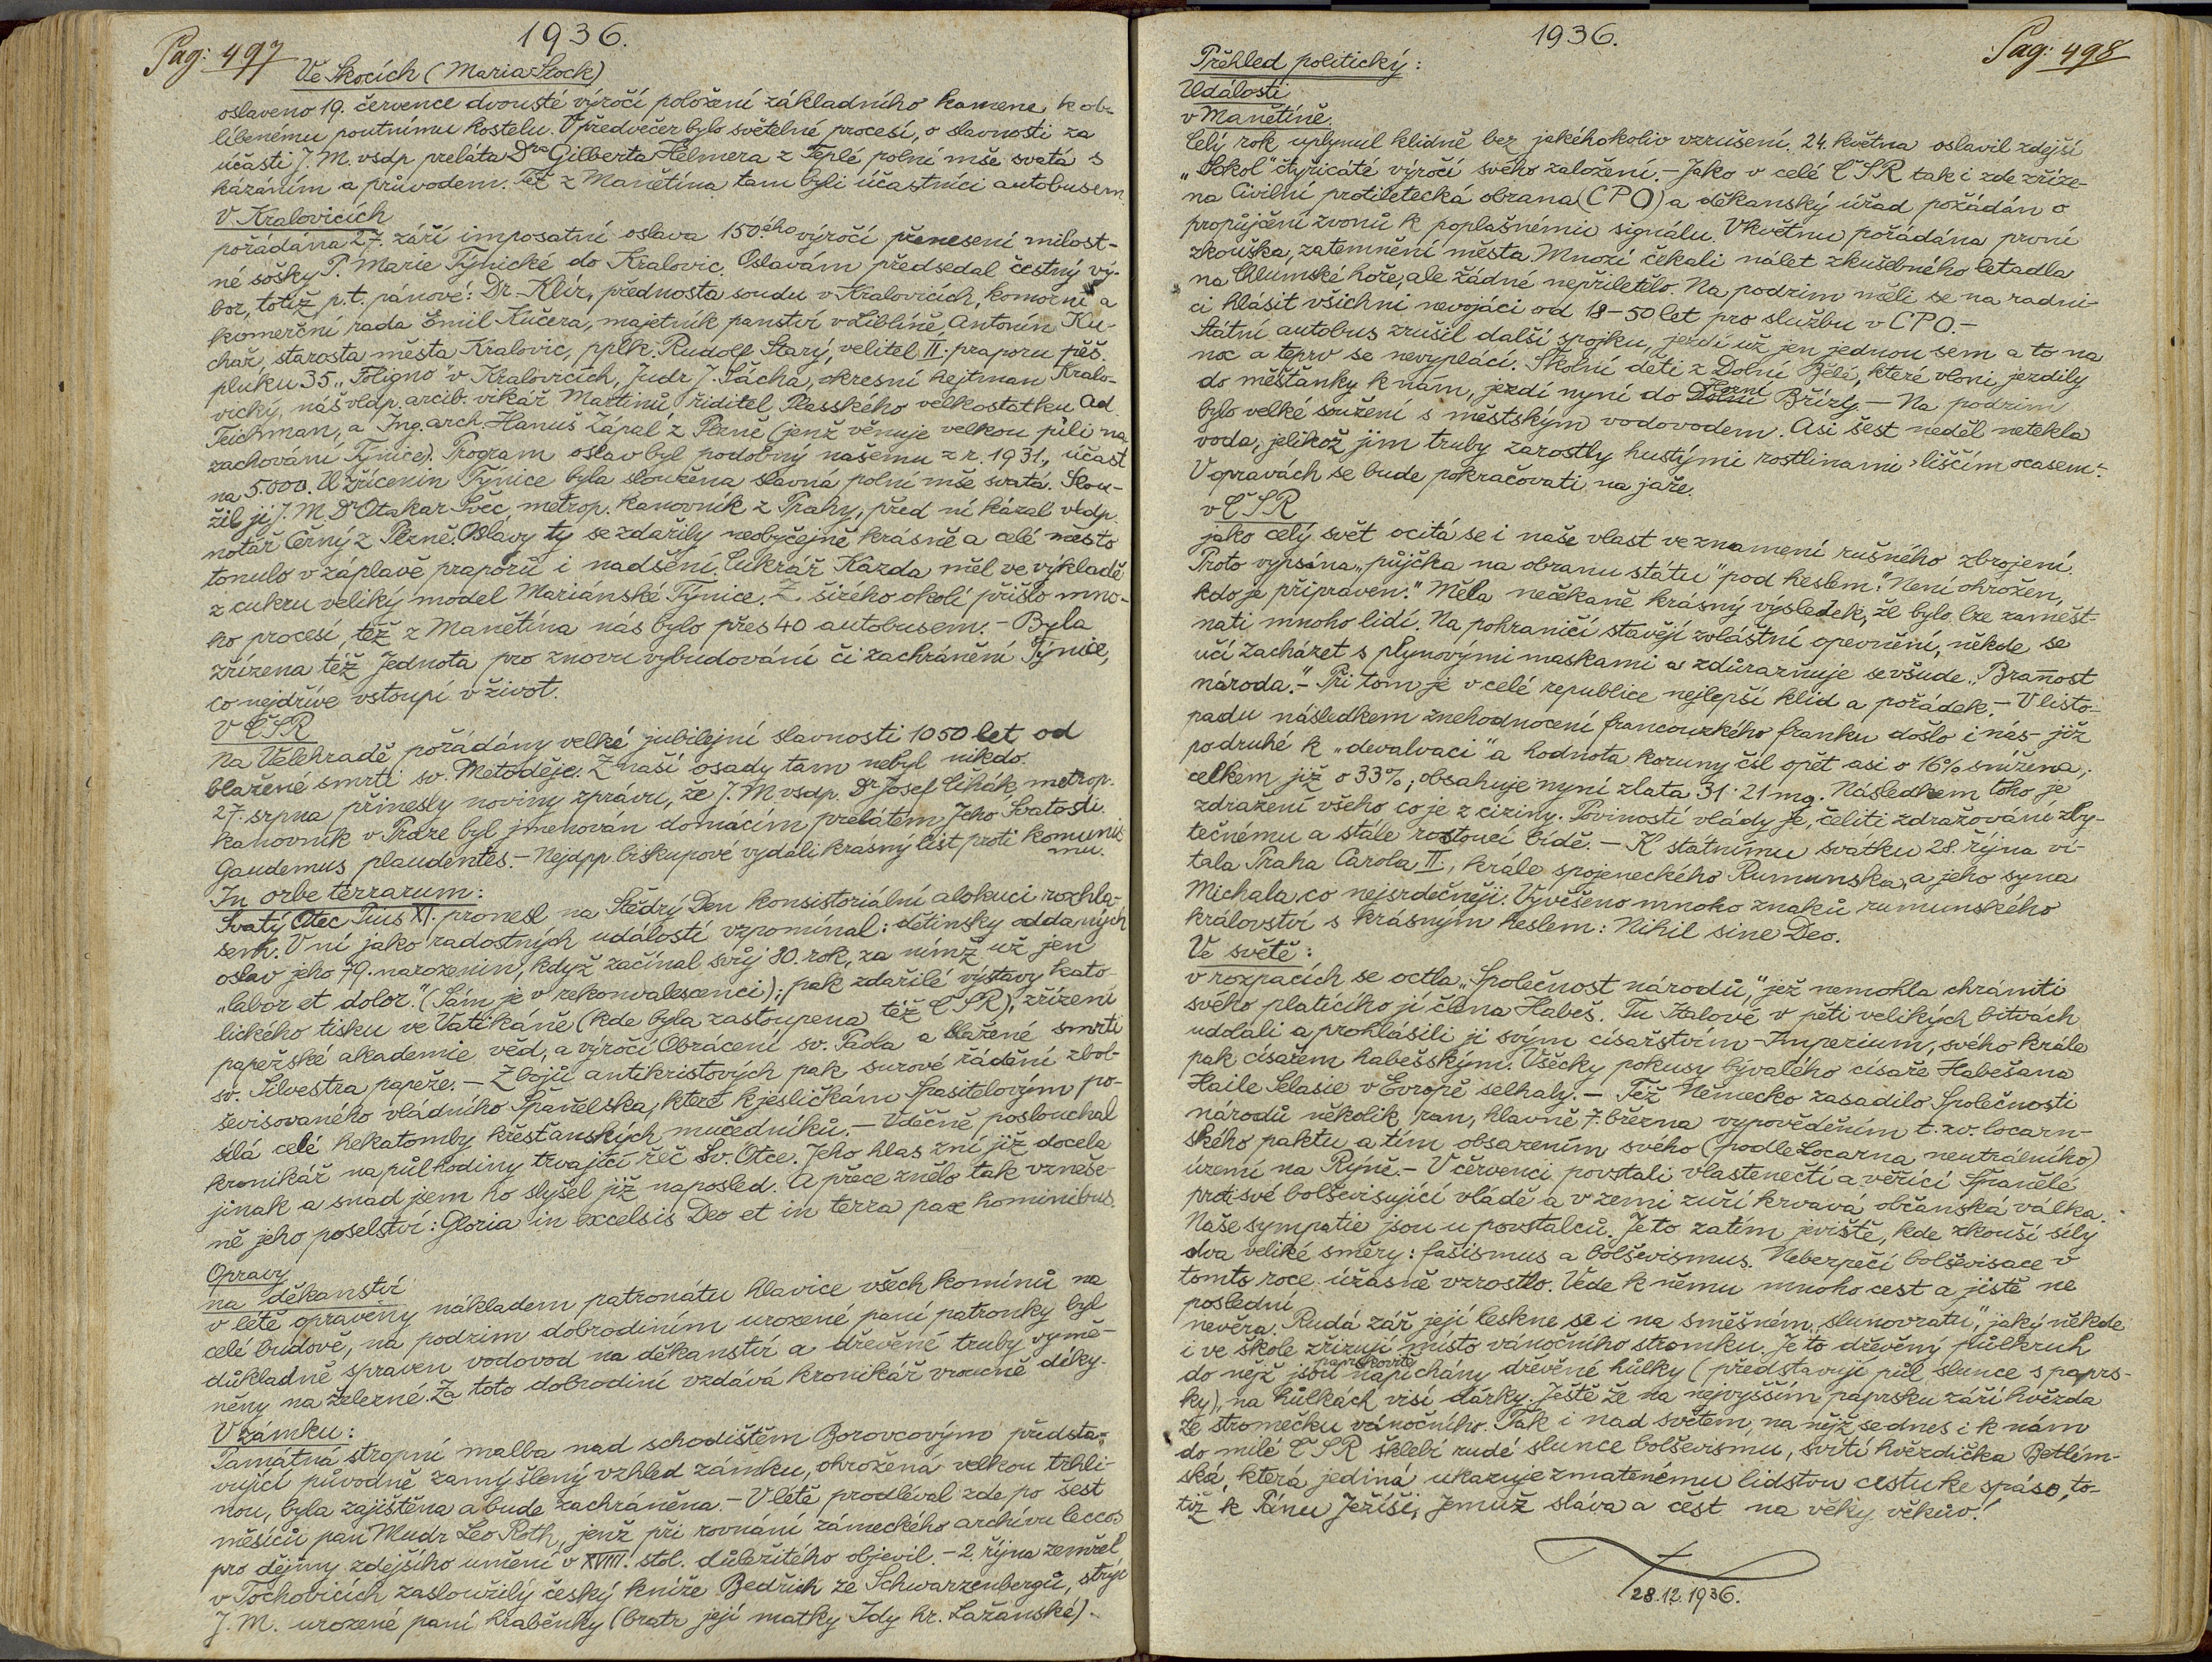 1936.
Pag: 497
Ve Skocích (Maria Stock)
oslaveno 19. července dvousté výročí položení základního kamene k ob-
líbenému poutnímu kostelu. V předvečer bylo světelné procesí, o slavnosti za
účasti J. M. vsdp preláta Dra Gilberta Helmera z Teplé polní mše svatá s
kázáním a průvodem. Též z Manětína tam byli účastníci autobusem.
V Kralovicích
pořádána 27. září imposatní oslava 150.ého výročí přenesení milost-
né sošky P. Marie Týnické do Kralovic. Oslavám předsedal čestný vý-
bor, totiž p. t. pánové: Dr. Klír, přednosta soudu v Kralovicích, komorní a
komerční rada Emil Kučera, majetník panství v Liblíně, Antonín Ku-
chař, starosta města Kralovic, pplk. Rudolf Starý, velitel II. praporu pěš.
pluku 35 „Foligno" v Kralovicích, Judr J. Šácha, okresní hejtman Kralo-
vický, náš vldp. arcib. vikář Martinů, řiditel Plasského velkostatku Ad.
Teichman, a Ing. arch. Hanuš Zápal z Plzně (jenž věnuje velkou píli na
zachování Týnice). Program oslav byl podobný našemu z r. 1931., účast
na 5.000. U zřícenin Týnice byla sloužena slavná polní mše svatá. Slou-
žil ji J. M. Dr Otakar Švec, metrop. kanovník z Prahy, před ní kázal vldp.
notář Černý z Plzně. Oslavy ty se zdařily neobyčejně krásně a celé město
tonulo v záplavě praporů i nadšení. Cukrář Kazda měl ve výkladě
z cukru veliký model Mariánské Týnice. Z širého okolí přišlo mno-
ho procesí, též z Manětína nás bylo přes 40 autobusem. - Byla
zřízena též Jednota pro znovu vybudování či zachránění Týnice,
co nejdříve vstoupí v život.
V ČSR
na Velehradě pořádány velké jubilejní slavnosti 1050 let od
blažené smrti sv. Metoděje. Z naší osady tam nebyl nikdo.
27. srpna přinesly noviny zprávu, že J. M vsdp. Dr Josef Čihák, metrop.
kanovník v Praze byl jmenován domácím prelátem Jeho Svatosti.
Gaudemus plaudentes. - Nejdpp. biskupové vydali krásný list proti komunis
mu.
In orbe terrarum:
Svatý Otec Pius XI. pronesl na Štědrý Den konsistoriální alokuci rozhla-
sem. V ní jako radostných událostí vzpomínal: dětinsky oddaných
oslav jeho 79. narozenin, když začínal svůj 80. rok, za nímž už jen
„labor et dolor." (Sám je v rekonvalescenci); pak zdařilé výstavy kato-
lického tisku ve Vatikáně (kde byla zastoupena též ČSR), zřízení
papežské akademie věd, a výročí Obrácení sv. Pavla a blažené smrti
sv. Silvestra papeže. - Zbojů antikristových pak surové řádění zbol-
ševisovaného vládního Španělska, které k jesličkám Spasitelovým po-
sílá celé hekatomby křesťanských mučedníků. - Vděčně poslouchal
kronikář na půl hodiny trvající řeč Sv. Otce. Jeho hlas zní již docela
jinak a snad jsem ho slyšel již naposled. A přece znělo tak vzneše-
ně jeho poselství: Gloria in excelsis Deo et in terra pax hominibus.
Opravy
na děkanství
v létě opraveny nákladem patronátu hlavice všech komínů na
celé budově, na podzim dobrodiním urozené paní patronky byl
důkladně spraven vodovod na děkanství a dřevěné truby vymě-
něny na železné. Za toto dobrodiní vzdává kronikář vroucně díky.
V zámku:
Památná stropní malba nad schodištěm Borovcovým předsta-
vující původně zamýšlený vzhled zámku, ohrožená velkou trhli-
nou, byla zajištěna a bude zachráněna. - V létě prodléval zde po šest
měsíců pan Mudr Leo Roth, jenž při rovnání zámeckého archívu leccos
pro dějiny zdejšího umění v XVIII. stol. důležitého objevil. - 2. října zemřel
v Tochovicích zasloužilý český kníže Bedřich ze Schwarzenbergů, strýc
J. M. urozené paní hraběnky (bratr její matky Idy hr. Lažanské).
1936.
Pag: 498
Přehled politický:
Události
v Manětíně.
Celý rok uplynul klidně bez jakéhokoliv vzrušení. 24. května oslavil zdejší
„Sokol" čtyřicáté výročí svého založení. - Jako v celé ČSR tak i zde zříze-
na Civilní protiletecká obrana (CPO) a děkanský úřad požádán o
propůjčení zvonů k poplašnému signálu. V květnu pořádána první
zkouška, zatemnění města. Mnozí čekali nálet zkušebného letadla
na Chlumské hoře, ale žádné nepřiletělo. Na podzim měli se na radni-
ci hlásit všichni nevojáci od 18-50 let pro službu v CPO. -
Státní autobus zrušil další spojku, jezdí už jen jednou sem a to na
noc a teprv se nevyplácí. Školní děti z Dolní Bělé, které vloni jezdily
do měšťanky k nám, jezdí nyní do Horní Břízy. - Na podzim
bylo velké soužení s městským vodovodem. Asi šest neděl netekla
voda, jelikož jim truby zarostly hustými rostlinami „liščím ocasem".
V opravách se bude pokračovati na jaře.
v ČSR
jako celý svět ocitá se i naše vlast ve znamení rušného zbrojení.
Proto vypsána „půjčka na obranu státu" pod heslem: „Není ohrožen,
kdo je připraven." Měla nečekaně krásný výsledek, že bylo lze zaměst-
nati mnoho lidí. Na pohraničí stavějí zvláštní opevnění, někde se
učí zacházet s plynovými maskami a zdůrazňuje se všude „Brannost
národa." - Při tom je v celé republice nejlepší klid a pořádek. - V listo-
padu následkem znehodnocení francouzkého franku došlo i nás již
podruhé k „devalvaci" a hodnota koruny čsl opět asi o 16% snížena,
celkem již o 33%; obsahuje nyní zlata 31·21 mg. Následkem toho je
zdražení všeho co je z ciziny. Povinností vlády je, čeliti zdražování zby-
tečnému a stále rostoucí bídě. - K státnímu svátku 28. října ví-
tala Praha Carola II., krále spojeneckého Rumunska, a jeho syna
Michala co nejsrdečněji. Vyvěšeno mnoho znaků rumunského
království s krásným heslem: Nihil sine Deo.
Ve světě:
v rozpacích se octla „Společnost národů", jež nemohla chrániti
svého platícího jí člena Habeš. Tu Italové v pěti velikých bitvách
udolali a prohlásili ji svým císařstvím - Imperium, svého krále
pak císařem habešským. Všecky pokusy bývalého císaře Habešana
Haile Selasie v Evropě selhaly. - Též Německo zasadilo Společnosti
národů několik ran, hlavně 7. března vypověděním t. zv. locarn-
ského paktu a tím obsazením svého (podle Locarna neutrálního)
území na Rýně. - V červenci povstali vlastenečtí a věřící Španělé
proti své bolševisující vládě a v zemi zuří krvavá občanská válka.
Naše sympatie jsou u povstalců. Je to zatím jeviště, kde zkouší síly
dva veliké směry: fašismus a bolševismus. Nebezpečí bolševisace v
tomto roce úžasně vzrostlo. Vede k němu mnoho cest a jistě ne
poslední
nevěra. Rudá zář její leskne se i na směšném „slunovratu", jaký někde
i ve škole zřizují místo vánočního stromku. Je to dřevěný půlkruh
do nějž jsou paprskovitě napichány dřevěné hůlky (představují půl slunce s paprs-
ky), na hůlkách visí dárky. Ještě že na nejvyšším paprsku září hvězda
ze stromečku vánočního. Tak i nad světem, na nějž se dnes i k nám
do milé ČSR šklebí rudé slunce bolševismu, svítí hvězdička Betlém-
ská, která jediná ukazuje zmatenému lidstvu cestu ke spáse, to-
tiž k Pánu Ježíši, Jemuž sláva a čest na věky věkův!
28.12.1936.